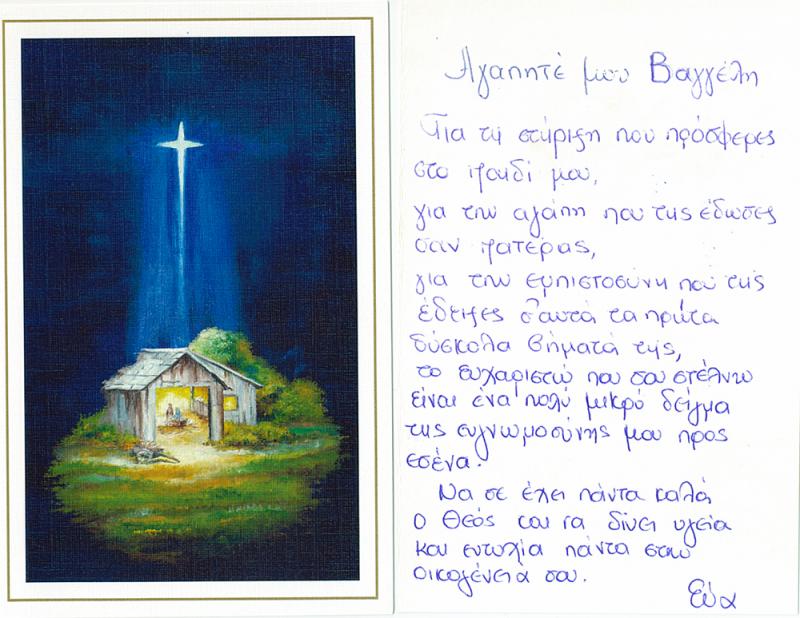 Αγαπητέ μου Βαγγέλη
Για τη στήριξη που πρόσφερες
στο παιδί μου,
για την αγάπη που της έδωσες
σαν πατέρας,
για την εμπιστοσύνη που της
έδειξες σ'αυτά τα πρώτα
δύσκολα βήματά της,
το ευχαριστώ που σου στέλνω
είναι ένα πολύ μικρό δείγμα
της ευγνωμοσύνης μου προς
εσένα.
Να σε έχει πάντα καλά
ο Θεός και να δίνει υγεία
και ευτυχία πάντα στην
οικογένειά σου.
Εύα